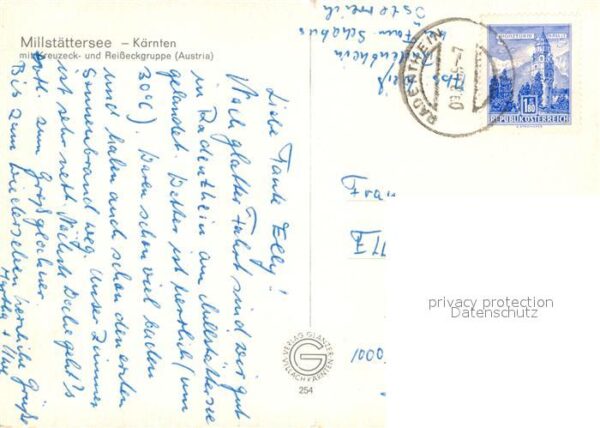 Millstättersee – Kärnten
mit Kreuzeck- und Reißeckgruppe (Austria)
Liebe Tante Elly!
Nach glatter Fahrt sind wir gut
in Radenthein am Millstättersee
gelandet. Wetter ist herrlich (um
30°C). Waren schon viel baden
und haben auch schon den ersten
Sonnenbrand weg. Unser Zimmer
ist sehr nett. Nächste Woche geht's
evtl. zum Großglockner.
Bis zum Wiedersehen herzliche Grüße
Hertha + Uwe
Radenthein
Österreich
RADENTHEIN
MÜNZTURM
HALL i. T.
1.80
REPUBLIK ÖSTERREICH
1000
VERLAG GLANZER
VILLACH KÄRNTEN
G
254
privacy protection
Datenschutz